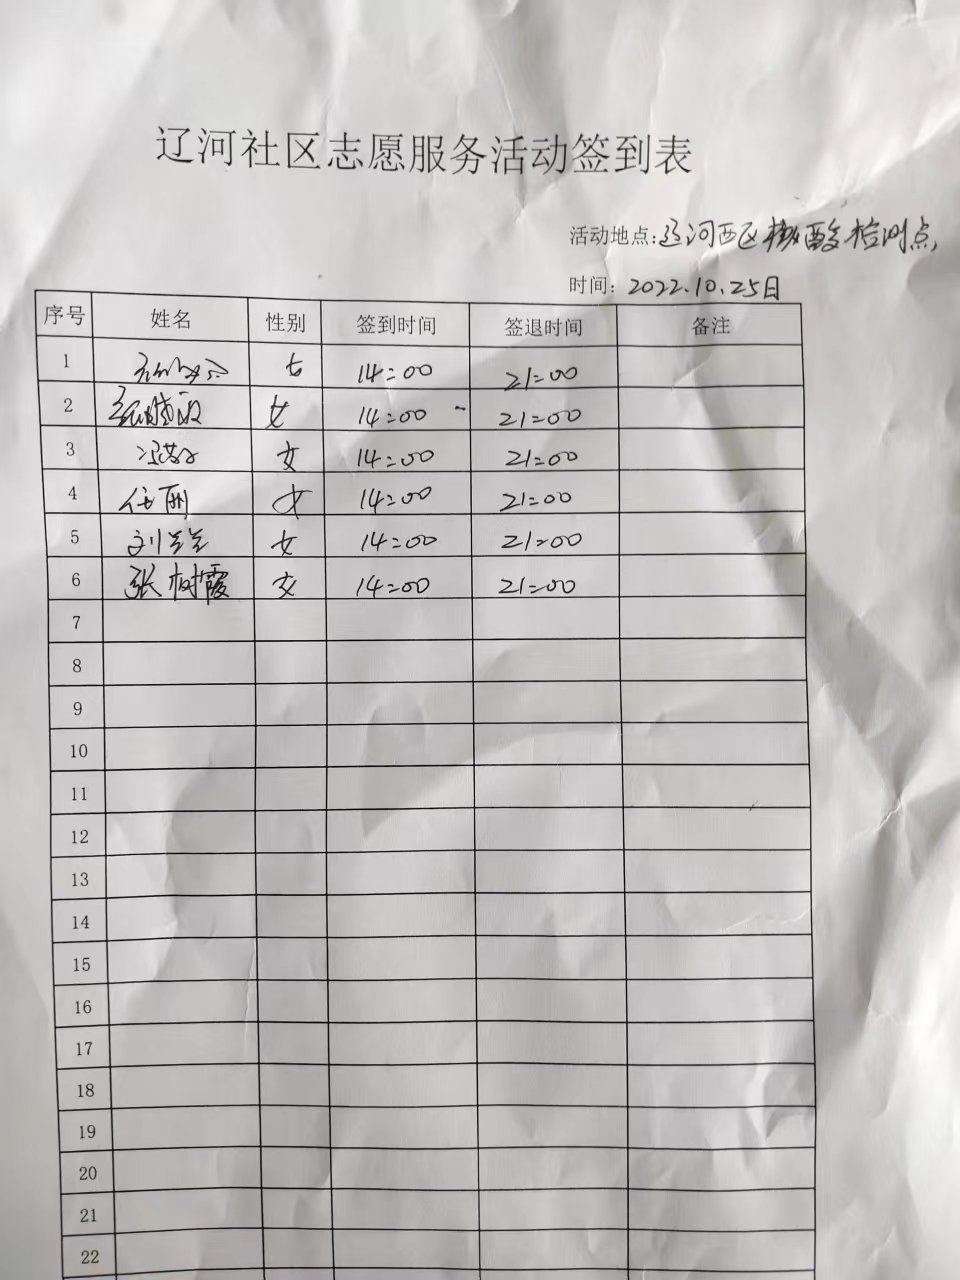 辽河社区志愿服务活动签到表
活动地点:辽河西区核酸检测点
时间: 2022.10.25日
序号 姓名 性别 签到时间 签退时间 备注
1 女 14:00 21:00
2 女 14:00 21:00
3 女 14:00 21:00
4 任丽 女 14:00 21:00
5 刘兰兰 女 14:00 21:00
6 张树霞 女 14:00 21:00
7
8
9
10
11
12
13
14
15
16
17
18
19
20
21
22